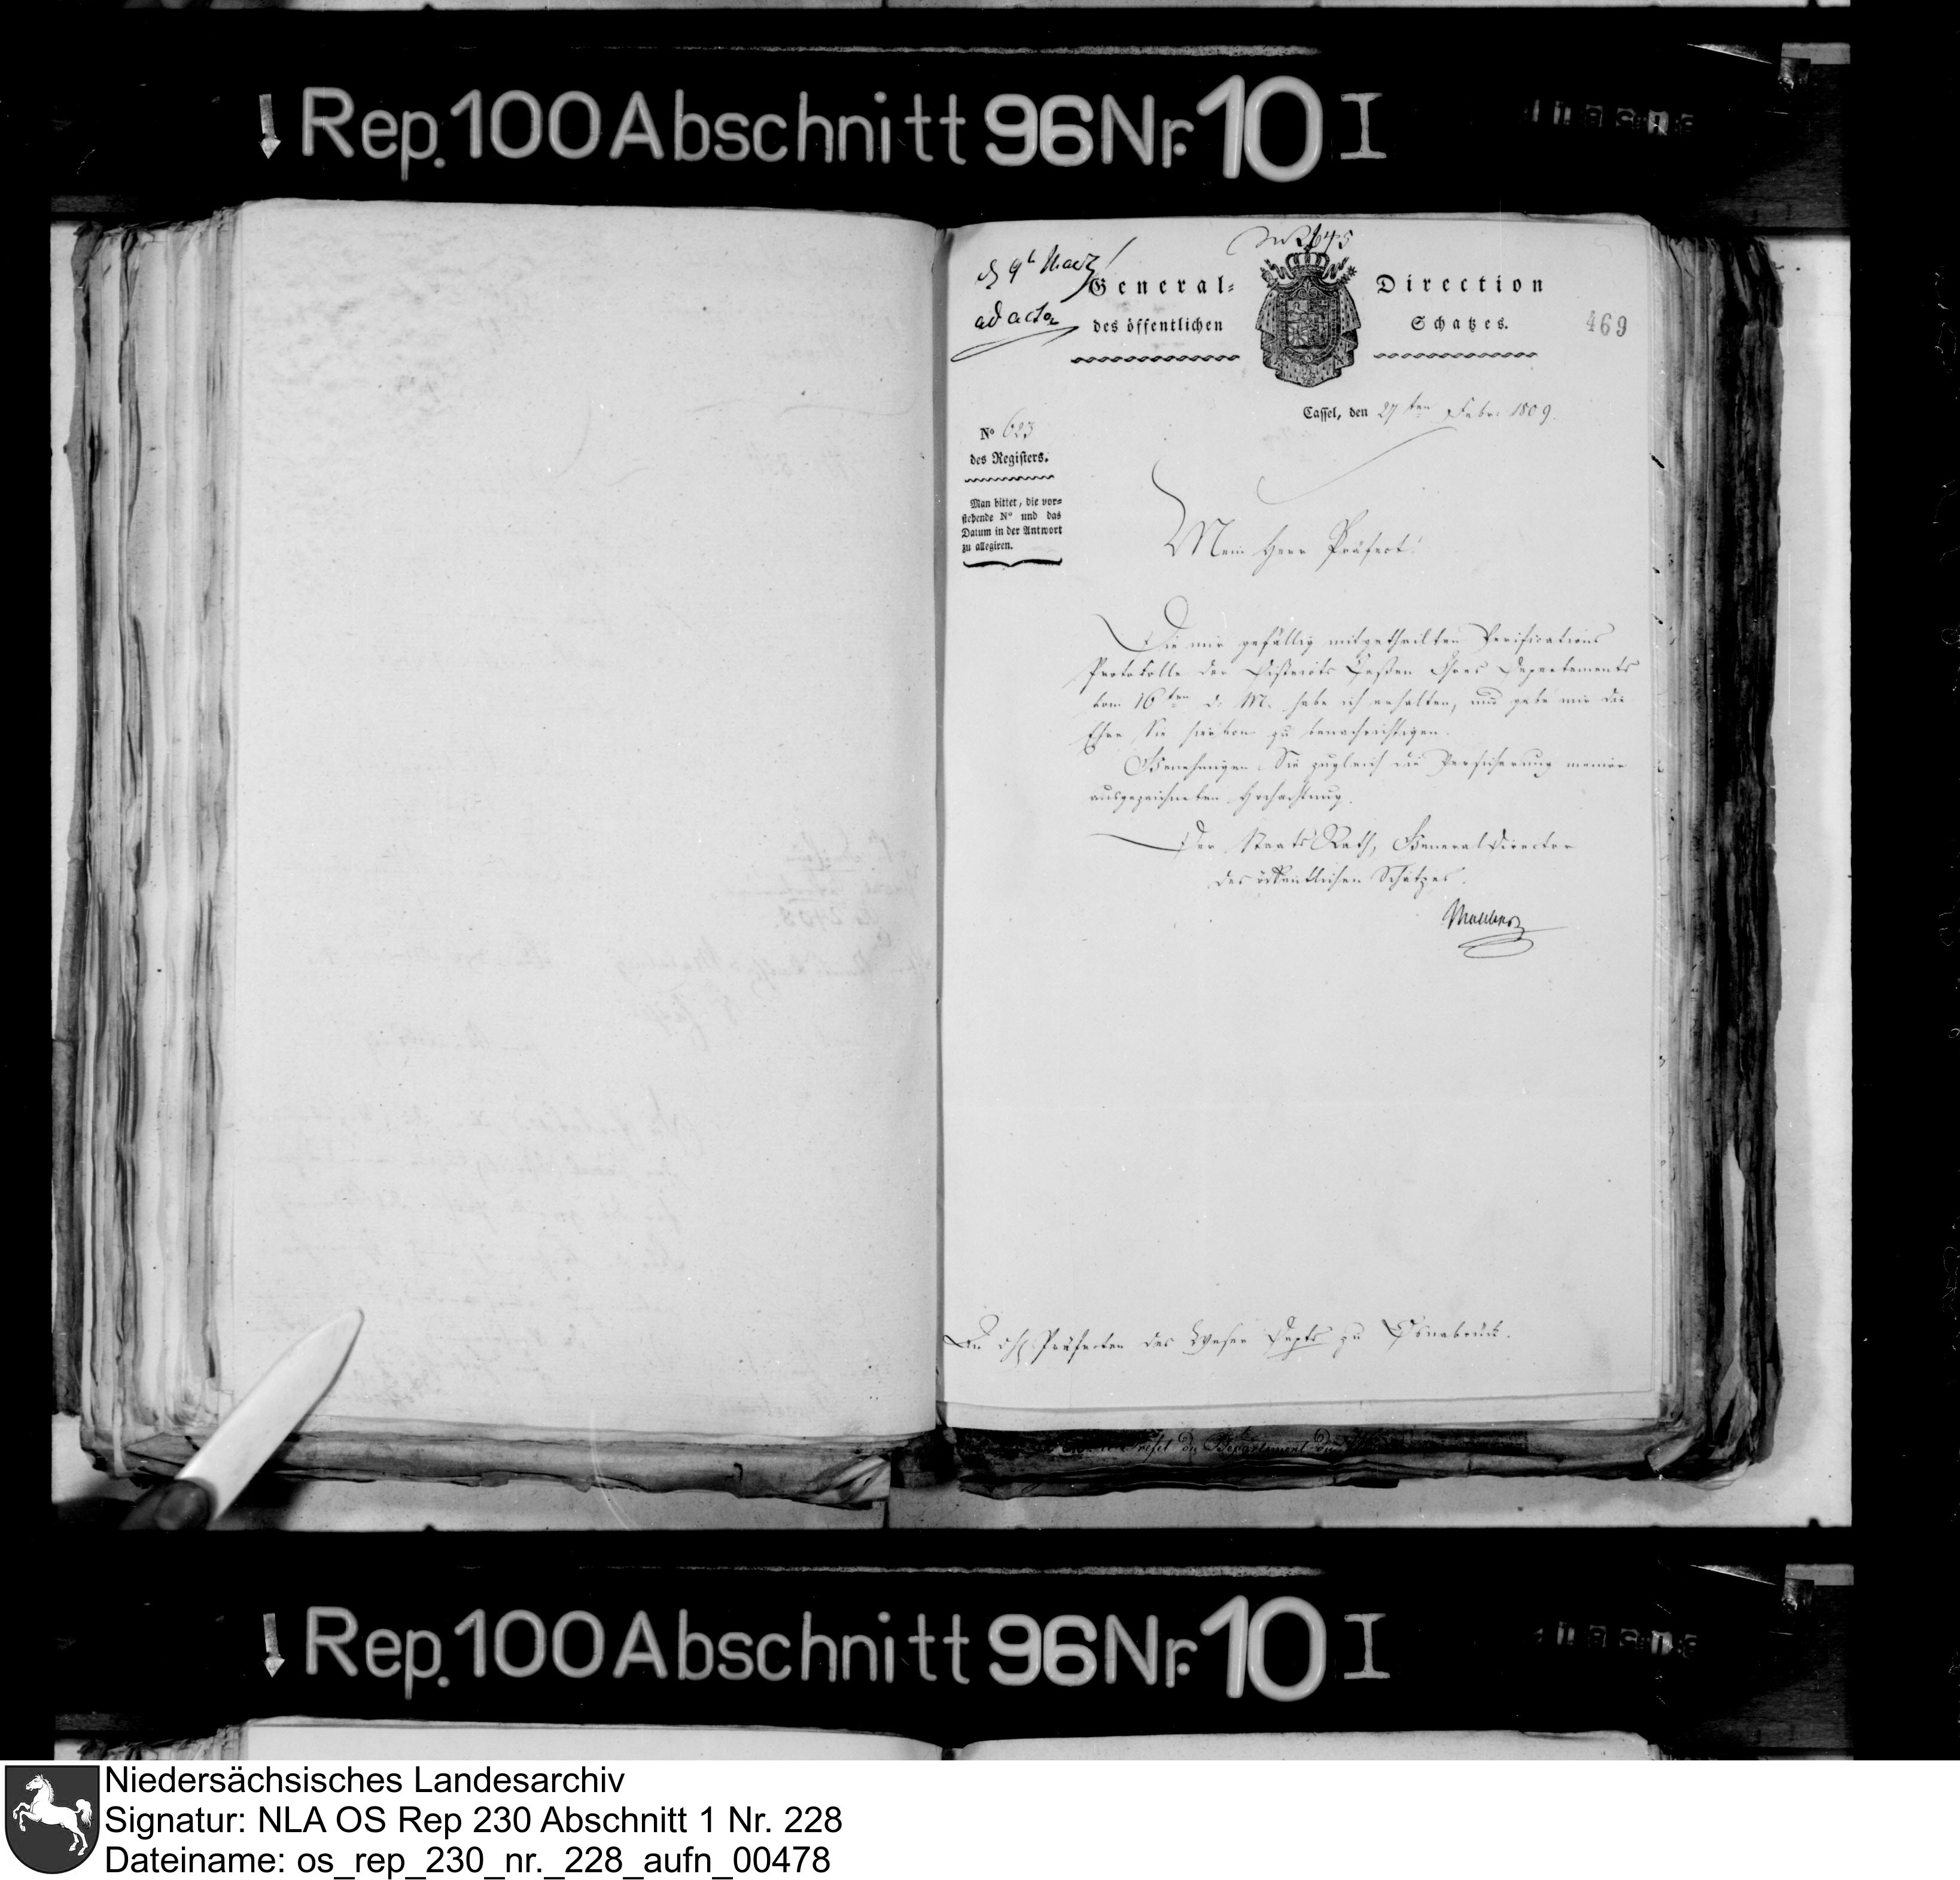 Rep. 100 Abschnitt 96 Nr. 10 I
№ 2645
d 9t Maerz
ad acta
General-Direction
des öffentlichen Schatzes.
469
Cassel, den 27ten Febr. 1809.
No 623
des Registers.
Man bittet, die vor-
stehende No und das
Datum in der Antwort
zu allegiren.
Mein Herr Präfect!
Die mir gefällig mitgetheilten Verifications
Protokolle der Districts Cassen Ihres Departements
vom 16ten d. M. habe ich erhalten, und gebe mir die
Ehre Sie hievon zu benachrichtigen.
Genehmigen Sie zugleich die Versicherung meiner
ausgezeichneten Hochachtung.
Der Staats Rath, General Director
des öffentlichen Schatzes.
An Präfecten des Weser Depts zu Osnabrück.
Prefet du Departement du
Rep. 100 Abschnitt 96 Nr. 10 I
Niedersächsisches Landesarchiv
Signatur: NLA OS Rep 230 Abschnitt 1 Nr. 228
Dateiname: os_rep_230_nr._228_aufn_00478